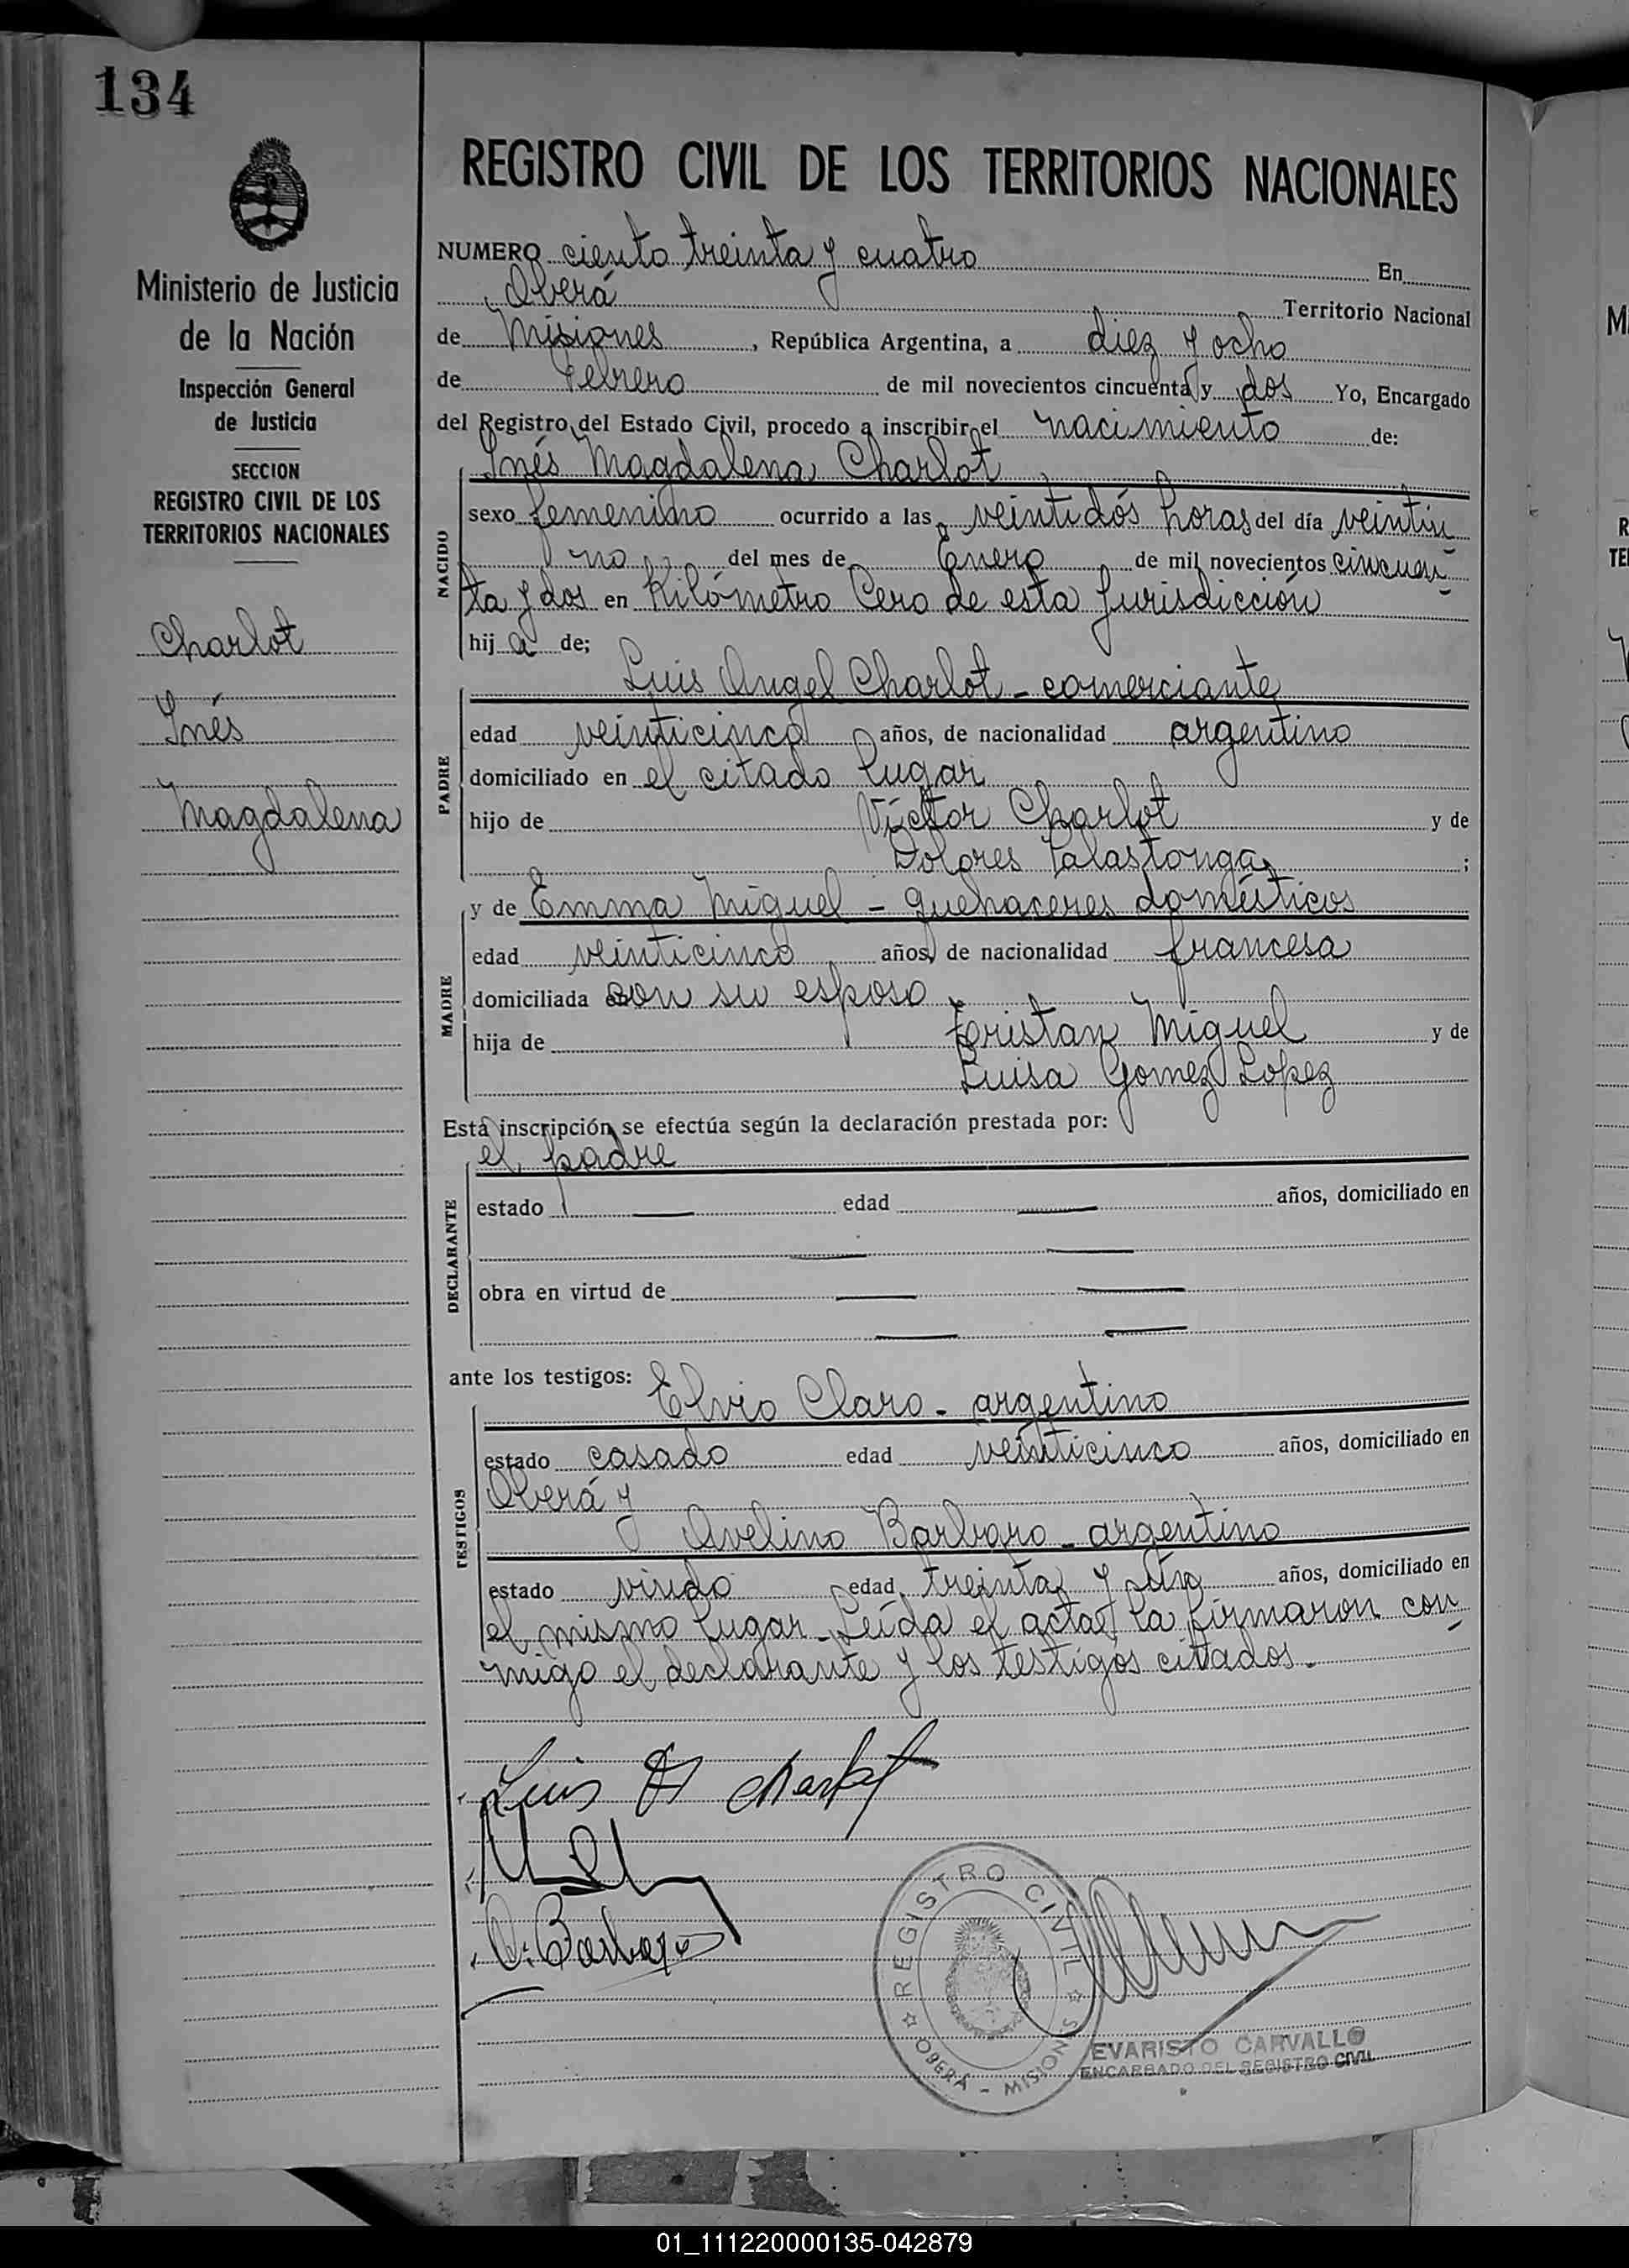 134
Ministerio de Justicia
de la Nación
Inspección General
de Justicia
SECCION
REGISTRO CIVIL DE LOS
TERRITORIOS NACIONALES
Charlot
Inés
Magdalena
REGISTRO CIVIL DE LOS TERRITORIOS NACIONALES
NUMERO ciento treinta y cuatro En
Oberá Territorio Nacional
de Misiones, República Argentina, a diez y ocho
de Febrero de mil novecientos cincuenta y dos Yo, Encargado
del Registro del Estado Civil, procedo a inscribir el nacimiento de:
Inés Magdalena Charlot
NACIDO
sexo femenino ocurrido a las veintidós horas del día veintiu
no del mes de Enero de mil novecientos cincuen
ta y dos en Kilómetro Cero de esta Jurisdicción
hija de;
Luis Angel Charlot - comerciante
PADRE
edad veinticinco años, de nacionalidad argentino
domiciliado en el citado lugar
hijo de Víctor Charlot y de
Dolores ;
y de Emma Miguel - quehaceres domésticos
MADRE
edad veinticinco años, de nacionalidad francesa
domiciliada con su esposo
hija de Tristan Miguel y de
Luisa Gomez Lopez
Esta inscripción se efectúa según la declaración prestada por:
el padre
DECLARANTE
estado edad años, domiciliado en
obra en virtud de
ante los testigos: Elvio Claro - argentino
TESTIGOS
estado casado edad veinticinco años, domiciliado en
Oberá y
Avelino Barbaro - argentino
estado viudo edad treinta y años, domiciliado en
el mismo lugar - Leída el acta la firmaron con
migo el declarante y los testigos citados.
Luis A Charlot
A. Barbaro
REGISTRO CIVIL
OBERÁ - MISIONES
EVARISTO CARVALLO
ENCARGADO DEL REGISTRO CIVIL
01_111220000135-042879